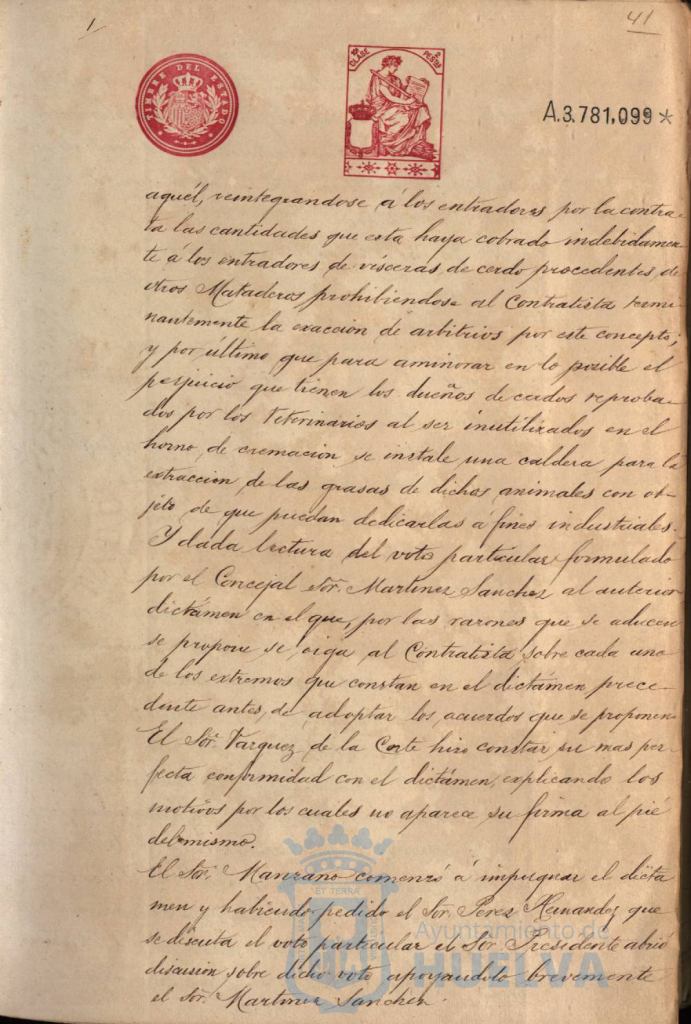 41
TIMBRE DEL ESTADO
CLASE
PESETAS
A.3.781,099 *
aquél, reintegrandose á los entradores por la contra-
ta las cantidades que esta haya cobrado indebidamen
te á los entradores de vísceras de cerdo procedentes de
otros Mataderos prohibiendose al Contratista termi-
nantemente la exacción de arbitrios por este concepto;
y por último que para aminorar en lo posible el
perjuicio que tienen los dueños de cerdos reproba-
dos por los Veterinarios al ser inutilizados en el
horno de cremación se instale una caldera para la
extraccion de las grasas de dichos animales con ob-
jeto de que puedan dedicarlas á fines industriales.
Y dada lectura del voto particular formulado
por el Concejal Sor. Martinez Sanchez al anterior
dictámen en el que, por las razones que se aducen
se propone se oiga al Contratista sobre cada uno
de los extremos que constan en el dictámen prece-
dente antes de adoptar los acuerdos que se proponen
El Sor. Vazquez de la Corte hizo constar su mas per-
fecta conformidad con el dictámen, explicando los
motivos por los cuales no aparece su firma al pié
del mismo.
El Sor. Manzano comenzó á impugnar el dicta
men y habiendo pedido el Sor. Perez Hernandez que
se discuta el voto particular el Sor. Presidente abrió
discusión sobre dicho voto apoyandolo brevemente
el Sor. Martinez Sanchez.
ET TERRA
Ayuntamiento de
HUELVA